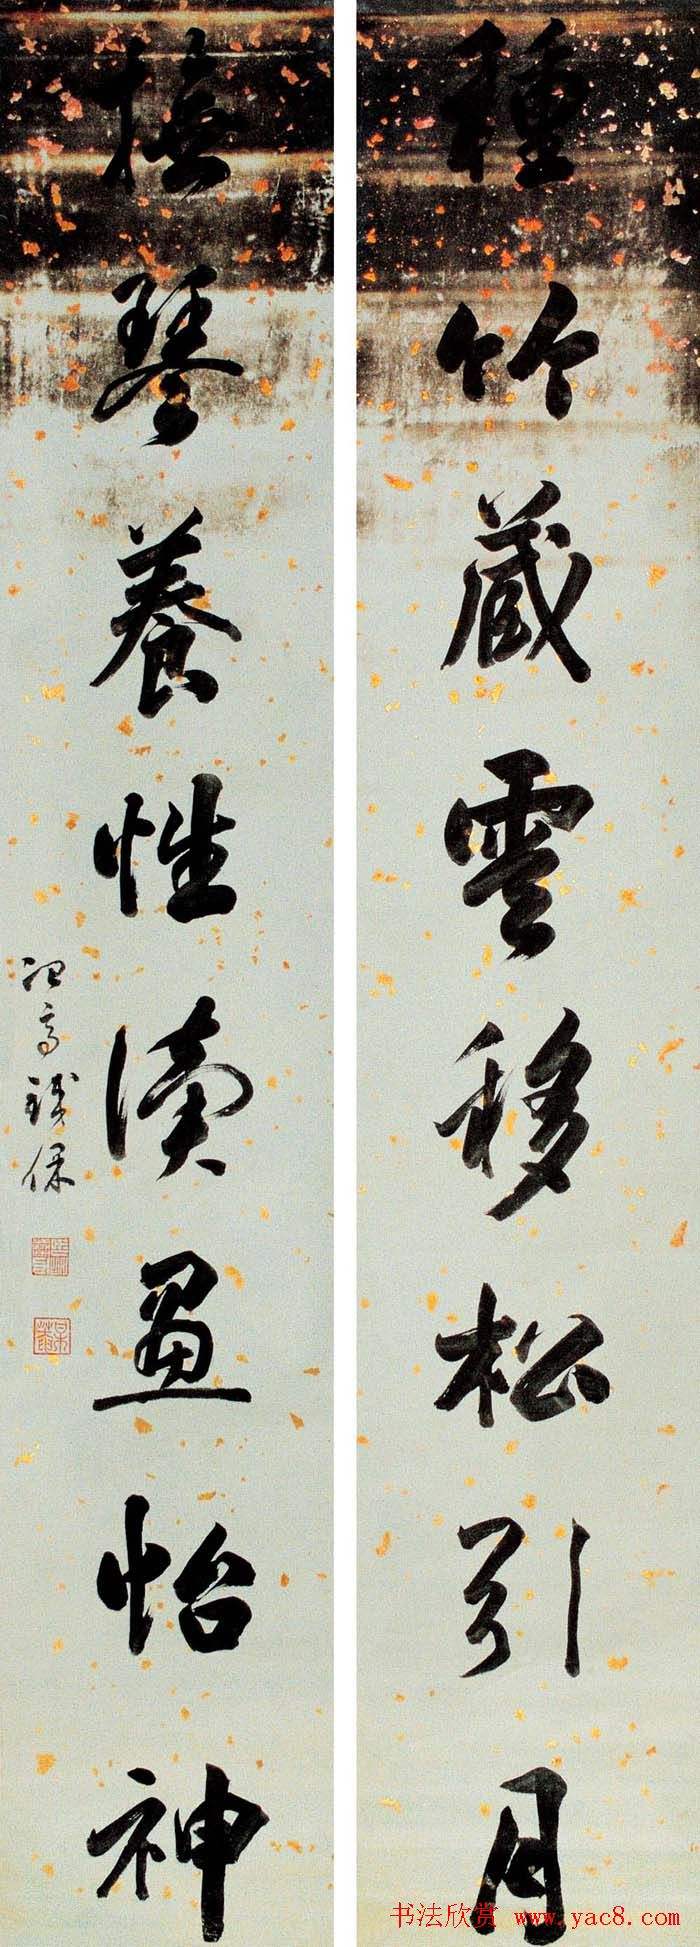 種竹藏雲移松引月
撫琴養性讀畫怡神
冶亭鐵保
书法欣赏 www.yac8.com